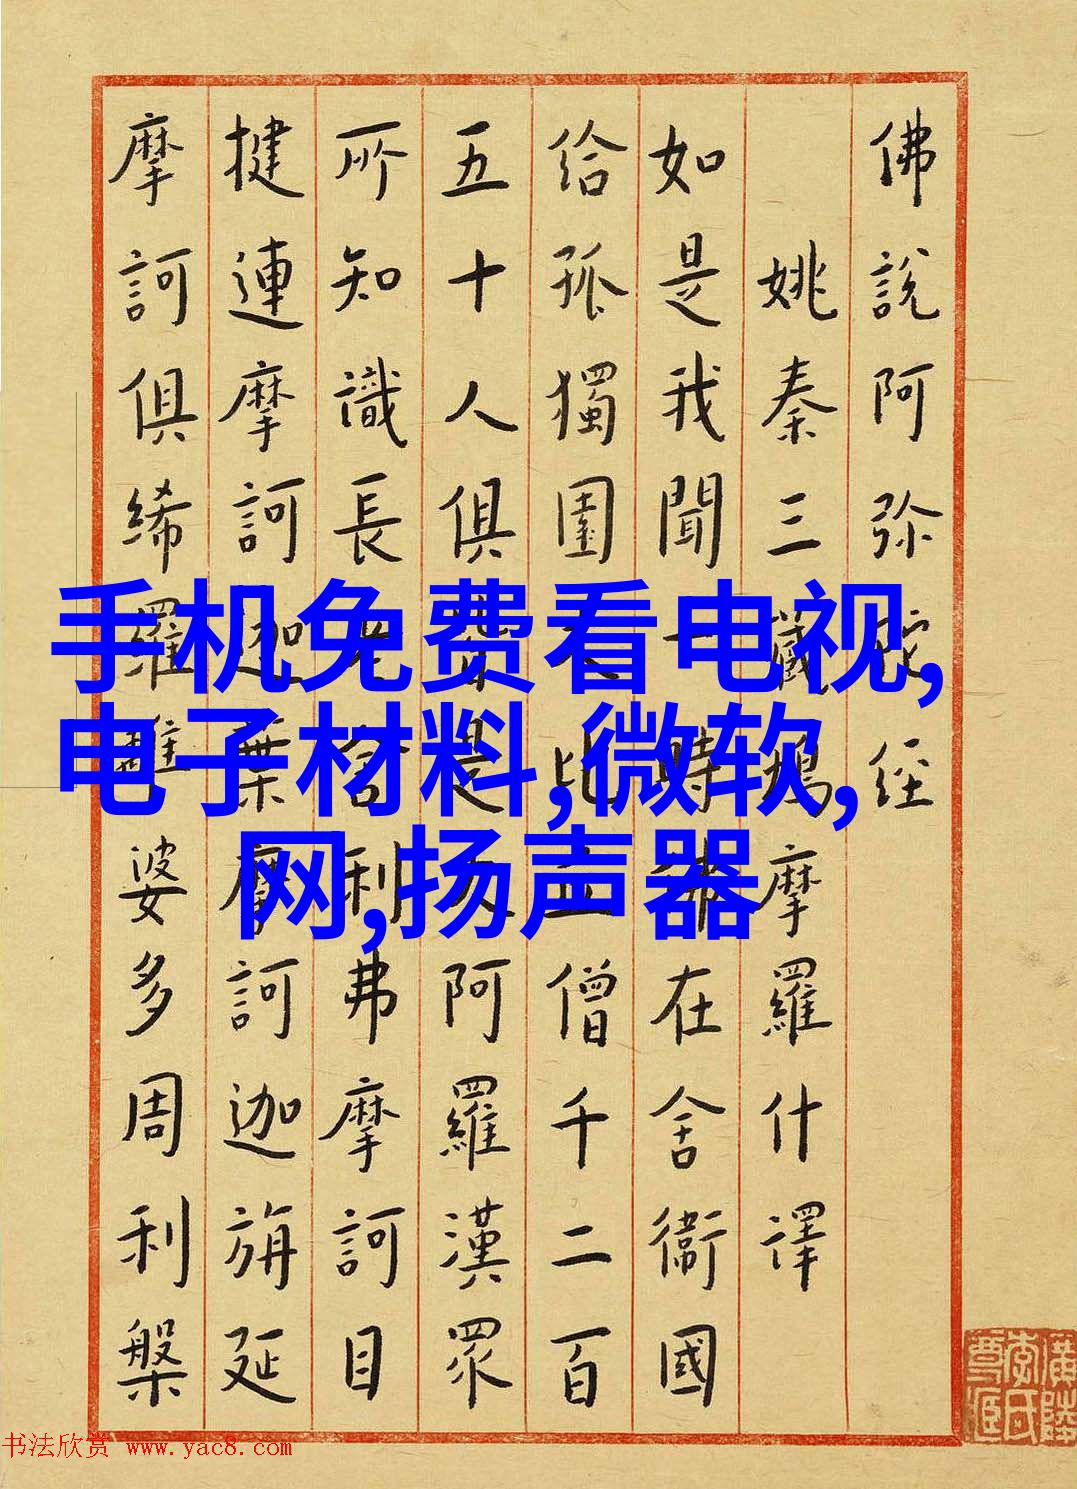 佛說阿弥陀經
姚秦三藏鳩摩羅什譯
如是我聞一時佛在舍衞國
給孤獨園大比丘僧千二百
五十人俱皆是大阿羅漢眾
所知識長老舍利弗摩訶目
揵連摩訶迦葉摩訶迦旃延
摩訶俱絺羅離婆多周利槃
手机免费看电视,
电子材料,微软,
网,扬声器
书法欣赏 www.yac8.com